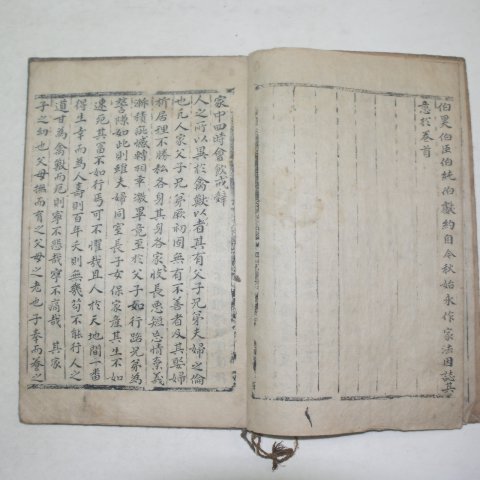 伯昊伯臣伯純伯獻約自今秋始永作家法因誌其
意於卷首
家中四時會飲戒辭
人之所以異於禽獸以者其有父子兄弟夫婦之倫
也凡人家父子兄弟厥初固無有不善者及其娶婦
析居理不勝私各身其身各家
長惡
怠情棄義
漸積疵
轉相乖激畢竟至於父子如行路兄弟為
讐隙如此則雖夫婦同室長子女保家産其生不如
速死其富不如行丐可不懼哉且人於天地間一番
得生幸而為人壽則百年夭則無幾苟不能行人之
道甘為禽獸而死則寧不悲哉寧不痛哉 其家
子之幼也父母撫而育之父母之老也子奉而養之